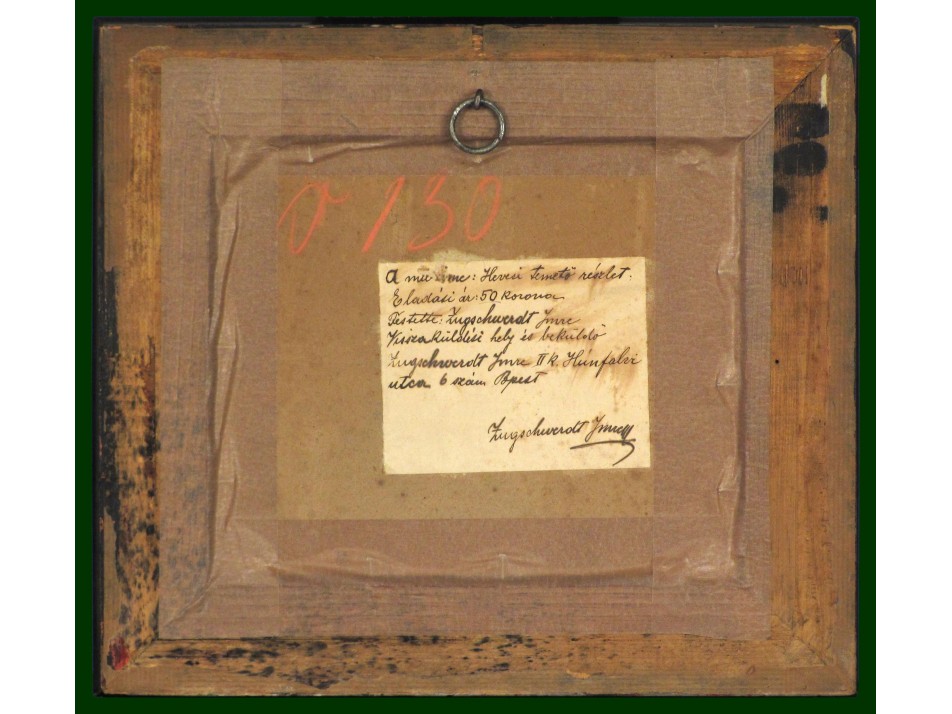 130
A mű címe: Hevesi temető részlet.
Eladási ár: 50 korona
Festette: Zugschwerdt Imre
Visszaküldési hely és beküldő
Zugschwerdt Imre II k. Húnfalvi
utca 6 szám Bpest
Zugschwerdt Imre